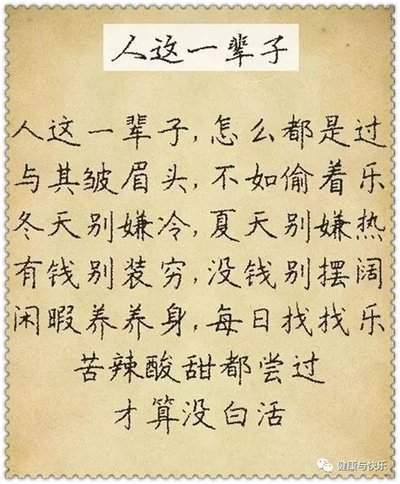 人这一辈子
人这一辈子,怎么都是过
与其皱眉头,不如偷着乐
冬天别嫌冷,夏天别嫌热
有钱别装穷,没钱别摆阔
闲暇养养身,每日找找乐
苦辣酸甜都尝过
才算没白活
健康与快乐